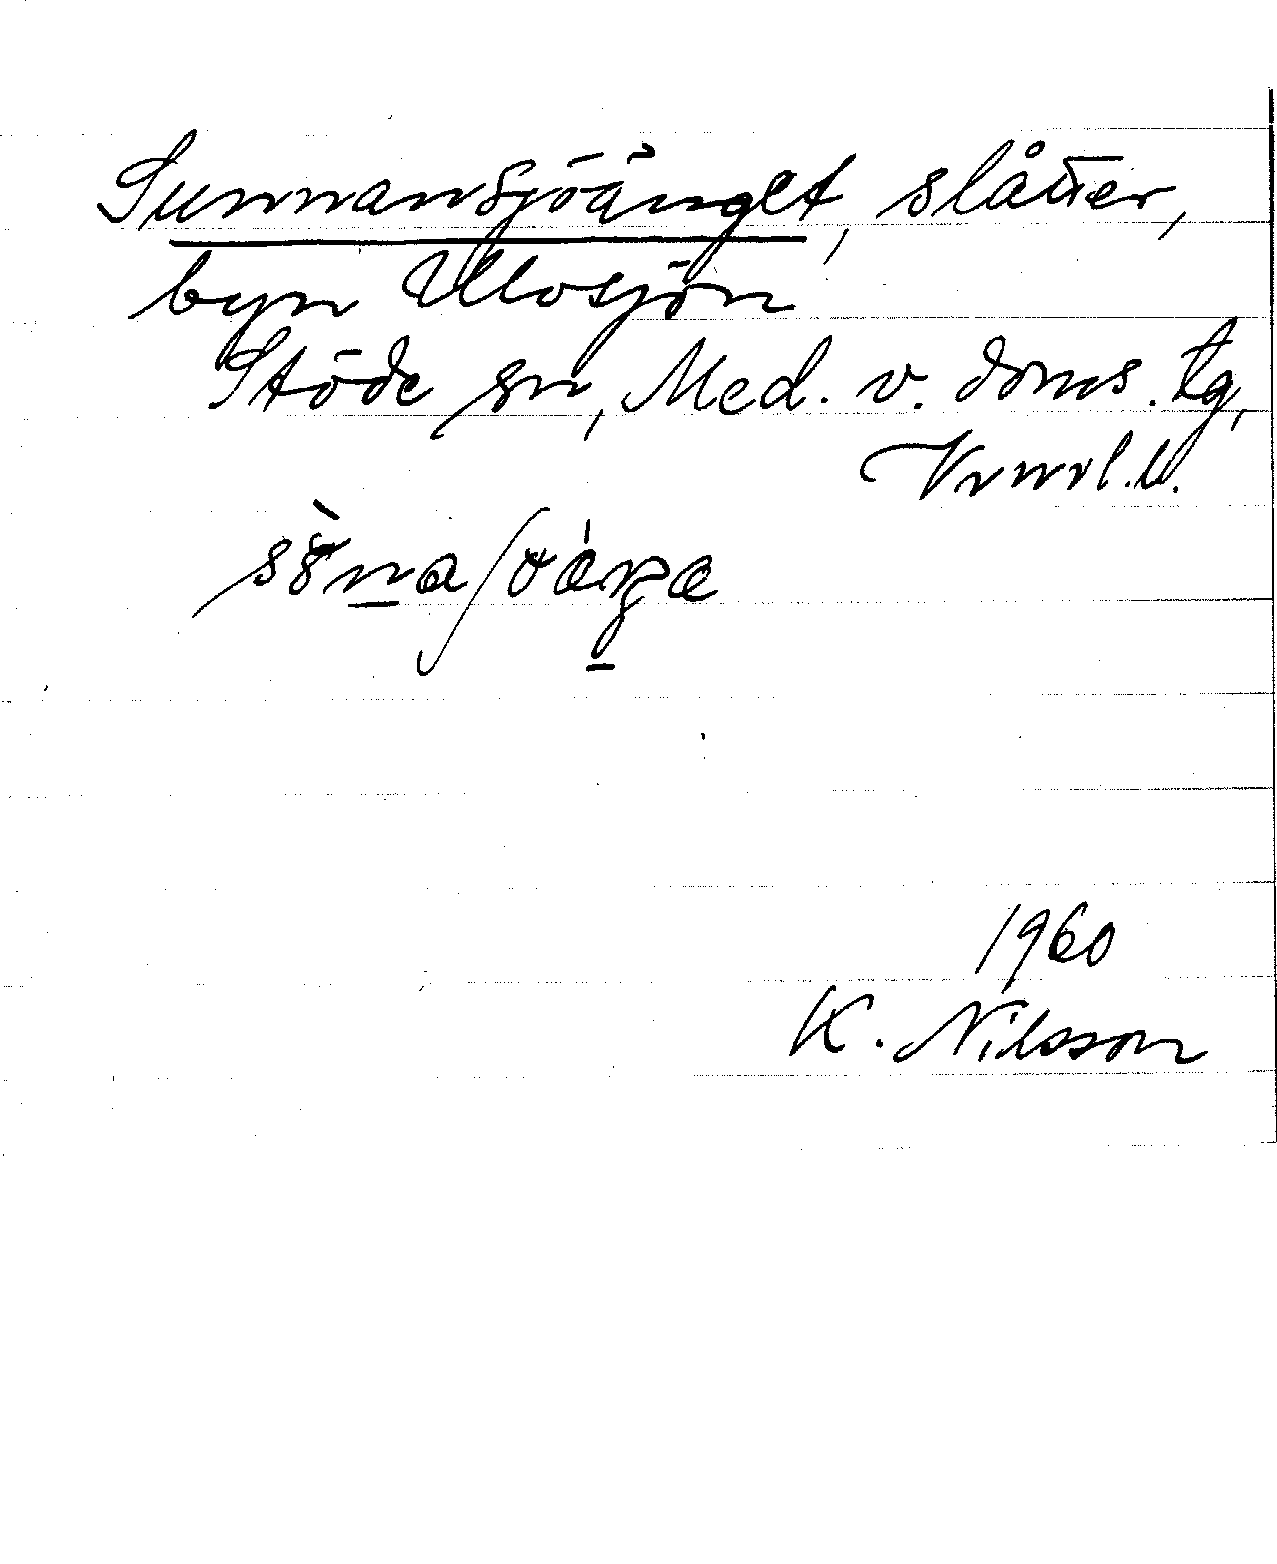 Sunnansjöänget, slåtter,
byn Ulvsjön
Stöde sn, Med. v. doms. tg,
Vrnrl. l.
1960
K. Nilsson